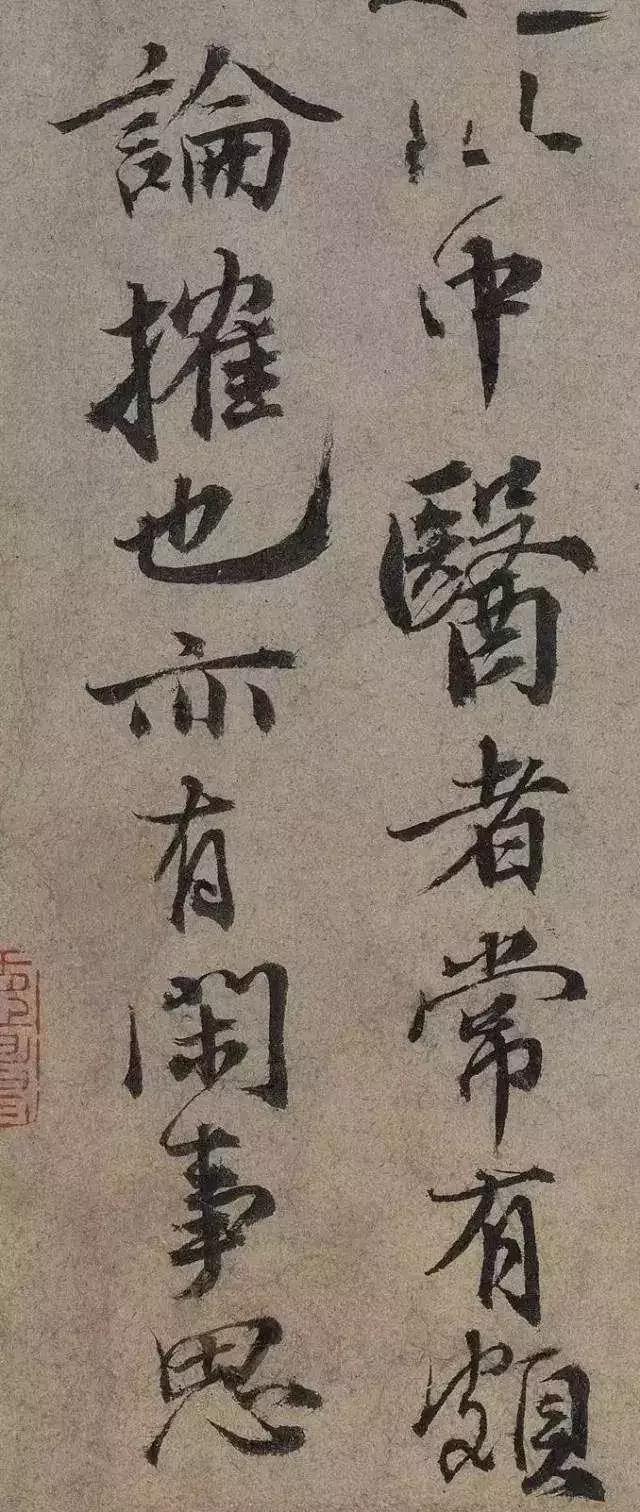 以醫者常有頗
論搉也亦有閑事思